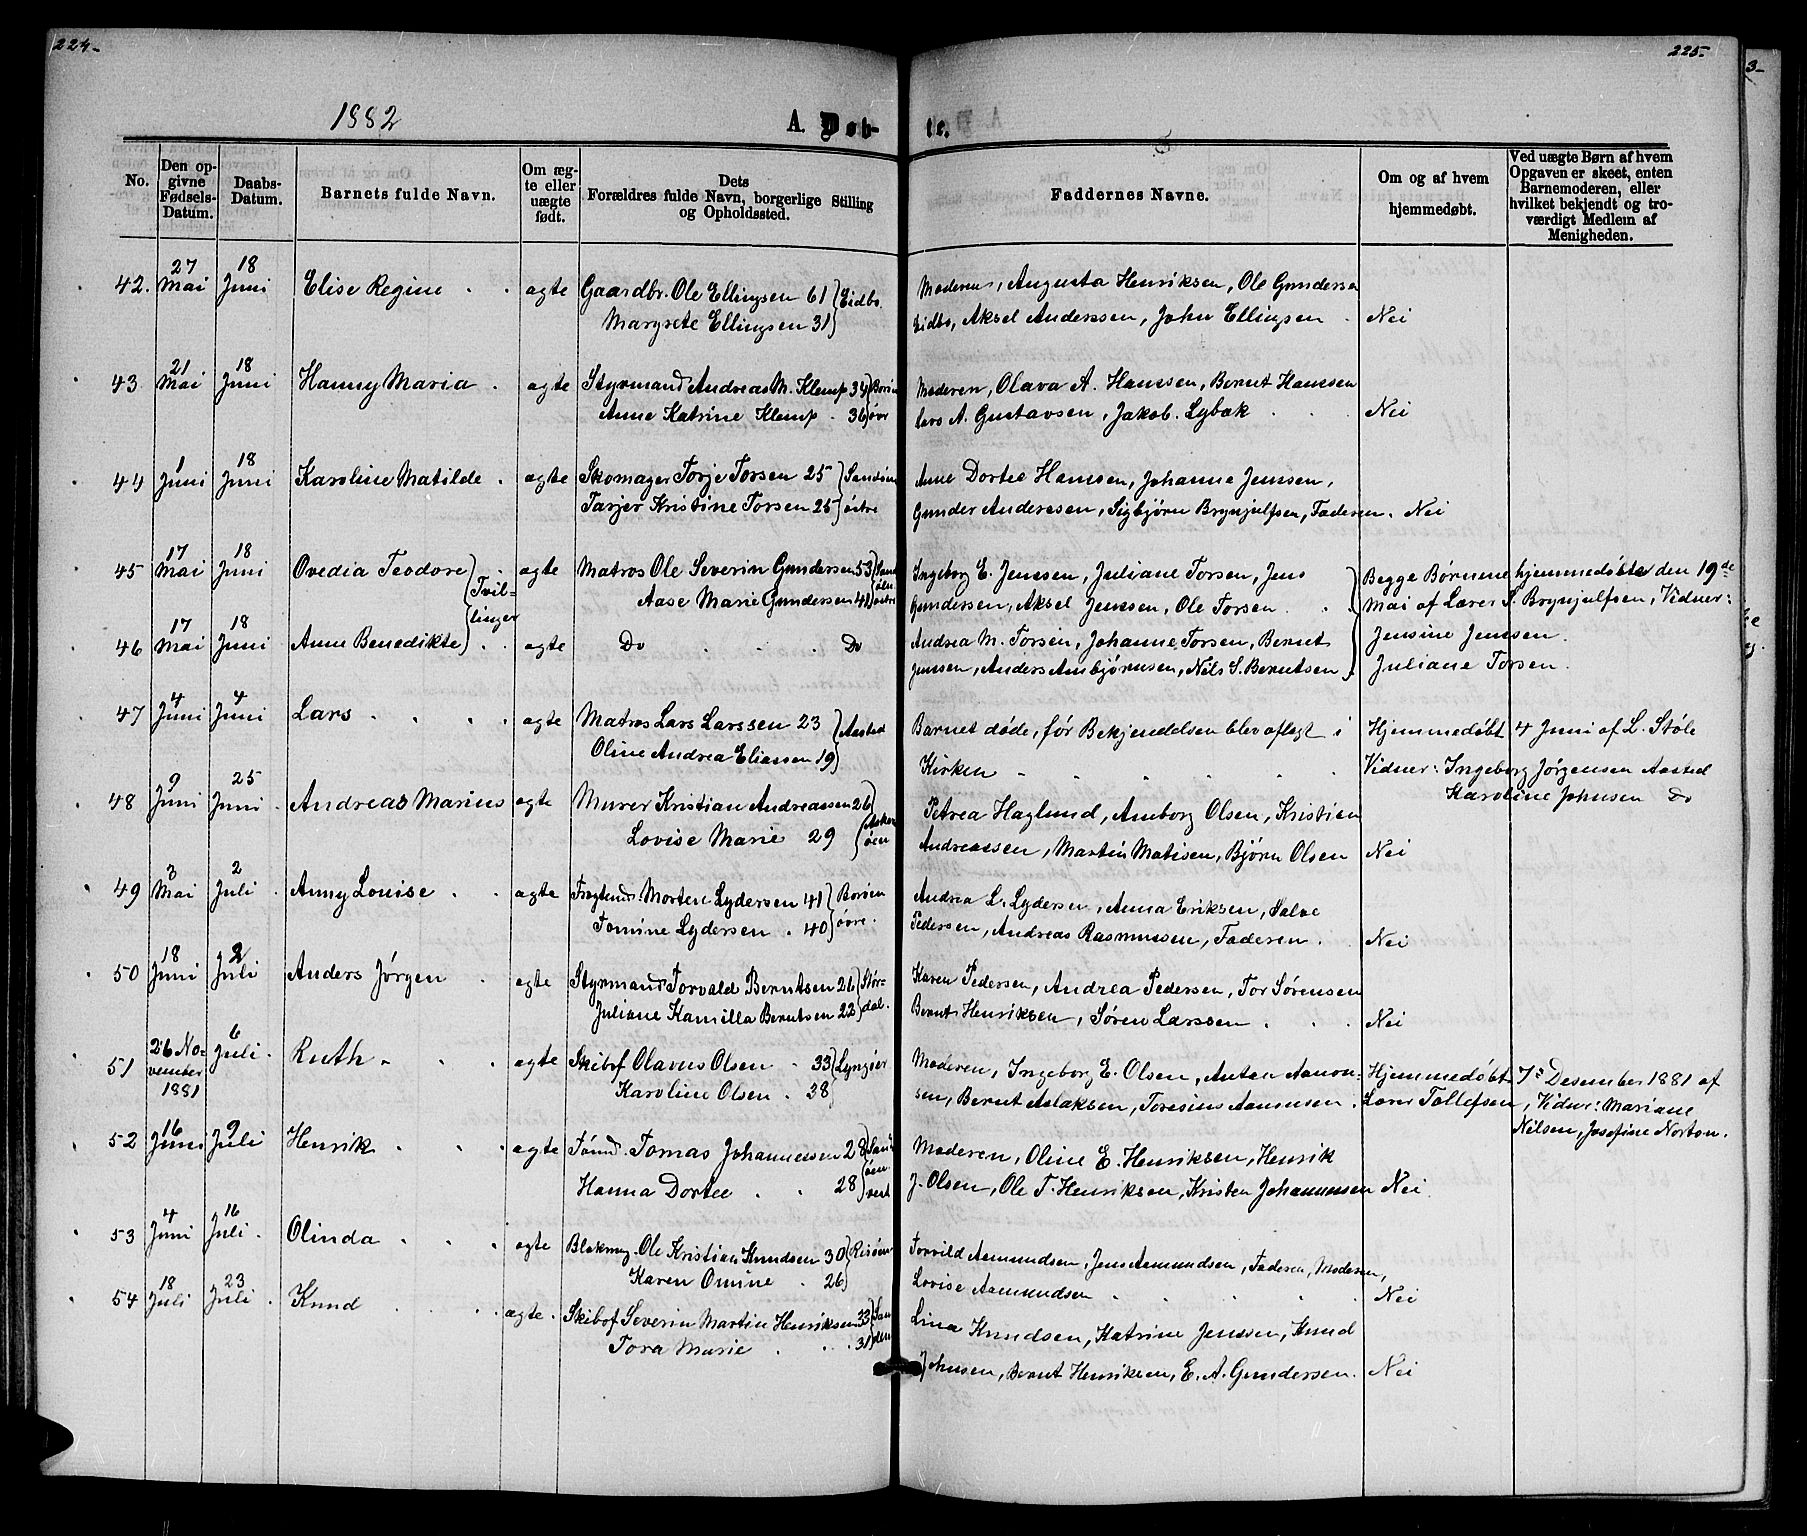 224-
225-
3-
1882
A. Døb-
te.
No.
Den op-
givne
Fødsels-
Datum.
Daabs-
Datum.
Barnets fulde Navn.
Om æg-
te eller
uægte
født.
Dets
Forældres fulde Navn, borgerlige Stilling
og Opholdssted.
Faddernes Navne.
Om og af hvem
hjemmedøbt.
Ved uægte Børn af hvem
Opgaven er skeet, enten
Barnemoderen, eller
hvilket bekjendt og tro-
værdigt Medlem af
Menigheden.
42. 27 Mai 18 Juni Elise Regine agte Gaardbr. Ole Ellingsen 61 Eidbo
Margrete Ellingsen 31
Moderen, Augusta Henriksen, Ole Gundersen
Eidbo, Aksel Anderssen, John Ellingsen. Nei
43 21 Mai 18 Juni Hanny Maria agte Styrmand Andreas M. Klemp 34 Borøen
Anne Katrine Klemp. 36 øvre
Moderen, Olava A. Hanssen, Bernt Hanssen
Lars A. Gustavsen, Jakob Lybæk Nei
44 1 Juni 18 Juni Karoline Matilde agte Skomager Torje Torsen 25 Sandøen
Tarjer Kristine Torsen 25 østre
Anne Dortee Hanssen, Johanne Jenssen,
Gunder Anderssen, Sigbjørn Brynjulfsen, Faderen. Nei
45 17 Mai 18 Juni Ovedia Teodore agte Matros Ole Severin Gundersen 53 Sand
Tvil-
linger
Aase Marie Gundersen 41 østre
Ingeborg E. Jenssen, Juliane Torsen, Jens
Gundersen, Aksel Jenssen, Ole Torsen.
Begge Børnene hjemmedøbte den 19de
Mai af Lærer S. Brynjulfsen, Vidner:
Jensine Jenssen.
Juliane Torsen.
46 17 Mai 18 Juni Anne Benedikte agte Do Do
Andrea M. Torsen, Johanne Torsen, Bernt
Jensen, Anders Ambjørnsen, Nils S. Berntsen
47 4 Juni 4 Juni Lars agte Matros Lars Larssen 23 Aasted
Oline Andrea Eliassen 19
Barnet døde, før Bekjendelsen blev aflagt i
Kirken
Hjemmedøbt 4 Juni af L. Støle
Vidner: Ingeborg Jørgensen Aasted
Karoline Johnsen Do
48 9 Juni 25 Juni Andreas Marius agte Murer Kristian Andreassen 26 Askerøen
Lovise Marie 29
Petrea Haglund, Amborg Olsen, Kristian
Andreassen, Martin Matisen, Bjørn Olsen Nei
49 3 Mai 2 Juli Anny Louise agte Fragtemd. Morten Lydersen 41 Borøen
Tomine Lydersen. 40 øvre.
Andrea L. Lydersen, Anna Eriksen, Salve
Pedersen, Andreas Rasmussen, Faderen. Nei
50 18 Juni 2 Juli Anders Jørgen agte Styrmand Torvald Berntsen 26 Stør-
Juliane Kamilla Berntsen 22 dal.
Karen Pedersen, Andrea Pedersen, Tor Sørensen
Bernt Henriksen, Søren Larssen Nei
51 26 No-
vember
1881 6 Juli Ruth agte Skibsf Olavus Olsen 33 Lyngør
Karoline Olsen. 38
Moderen, Ingeborg E. Olsen, Antan Aanon-
sen, Bernt Aslaksen, Toresius Aanonsen.
Hjemmedøbt 7de Desember 1881 af
Lærer Tollefsen, Vidner: Mariane
Nilsen, Josefine Norton.
52 16 Juni 9 Juli Henrik agte Tomas Johannessen 28 Sand
Hanna Dortee 28 øen vest
Moderen, Oline E. Henriksen, Henrik
J. Olsen, Ole T. Henriksen, Kristen Johannesen Nei
53 4 Juni 16 Juli. Olinda agte Blokmg. Ole Kristian Knudsen 30 Risøen
Karen Omine. 26
Torvild Aamundsen, Jens Aamundsen, Faderen, Moderen,
Lovise Aamundsen Nei
54 18 Juli 23 Juli Knud agte. Skibsf Severin Martin Henriksen 33 San
Tora Marie 31 døen
Lina Knudsen, Katrine Jenssen, Knud
Johnsen, Bernt Henriksen, E. A. Gundersen. Nei